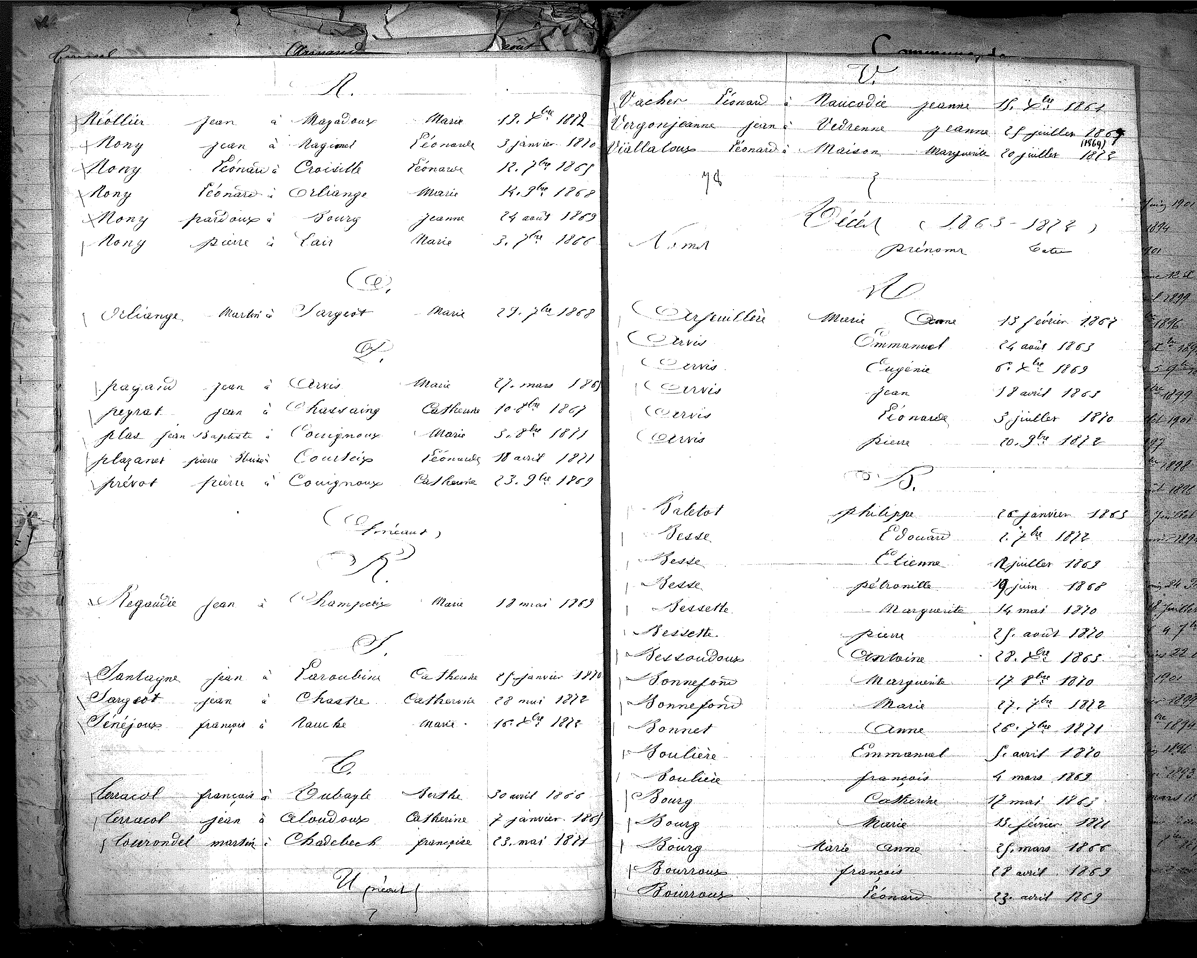 N.
Niollier jean à Magadoux Marie 12. Xbre 1872
Nony jean à Nagenet Léonarde 3 janvier 1870
Nony Léonard à Croisille Léonarde 12. 7bre 1865
Nony Léonard à Orliange Marie 14. 9bre 1868
Nony pardoux à Bourg jeanne 24 août 1869
Nony pierre à Lair Marie 3. 7bre 1866
O.
Orliange Martin à Sargeot Marie 29. 7bre 1868
P.
pagard jean à Arvis Marie 27. mars
peyrat jean à Chassaing Catherine 10. 8bre 1867
plas jean Baptiste à Couignoux Marie 3. 8bre 1871
plazanet pierre à Courteix Léonarde 18 avril 1871
prévot pierre à Couignoux Catherine 23. 9bre 1869
Q
(néant)
R.
Regaudie jean à Champeix Marie 18 mai 1869
S.
Santagne jean à Laroubine Catherine 25 janvier 1870
Sargeot jean à Chastre Catherine 28 mai 1872
Sénéjoux françois à Nauche Marie 16 Xbre
T.
Terracol françois à Dubayle Berthe 30 avril 1866
Terracol jean à Aloudoux Catherine 7 janvier
Tourondel martin à Chadebech françoise 23. mai 1871
U (néant)
V.
Vacher Léonard à Naucodie jeanne 15. Xbre 1864
Vergonjeanne jean à Vedrenne jeanne 25 juillet 1869
(1869)
Viallatoux Léonard à Maison Marguerite 20 juillet 1872
78
Décès (1863-1872)
Noms prénoms Dates
A
Arfeuillère Marie Anne 13 février 1867
Arvis Emmanuel 24 août 1863
Arvis Eugénie 6. Xbre 1869
Arvis jean 18 avril 1863
Arvis Léonarde 3 juillet 1870
Arvis pierre 20. 9bre 1872
B.
Baletot philippe 26 janvier 1863
Besse Edouard 2. 7bre 1872
Besse Etienne 12 juillet 1869
Besse pétronille 19 juin 1868
Bessette Marguerite 14 mai 1870
Bessette pierre 25. août 1870
Bessoudoux Antoine 28. Xbre 1863
Bonnefond Marguerite 17 8bre 1870
Bonnefond Marie 27. 7bre 1872
Bonnet Anne 26. 7bre 1871
Boulière Emmanuel 5. avril 1870
Boulière françois 4 mars 1869
Bourg Catherine 17 mai 1863
Bourg Marie 13. février 1871
Bourg Marie Anne 25. mars 1866
Bourroux françois 28 avril 1869
Bourroux Léonard 23. avril 1869